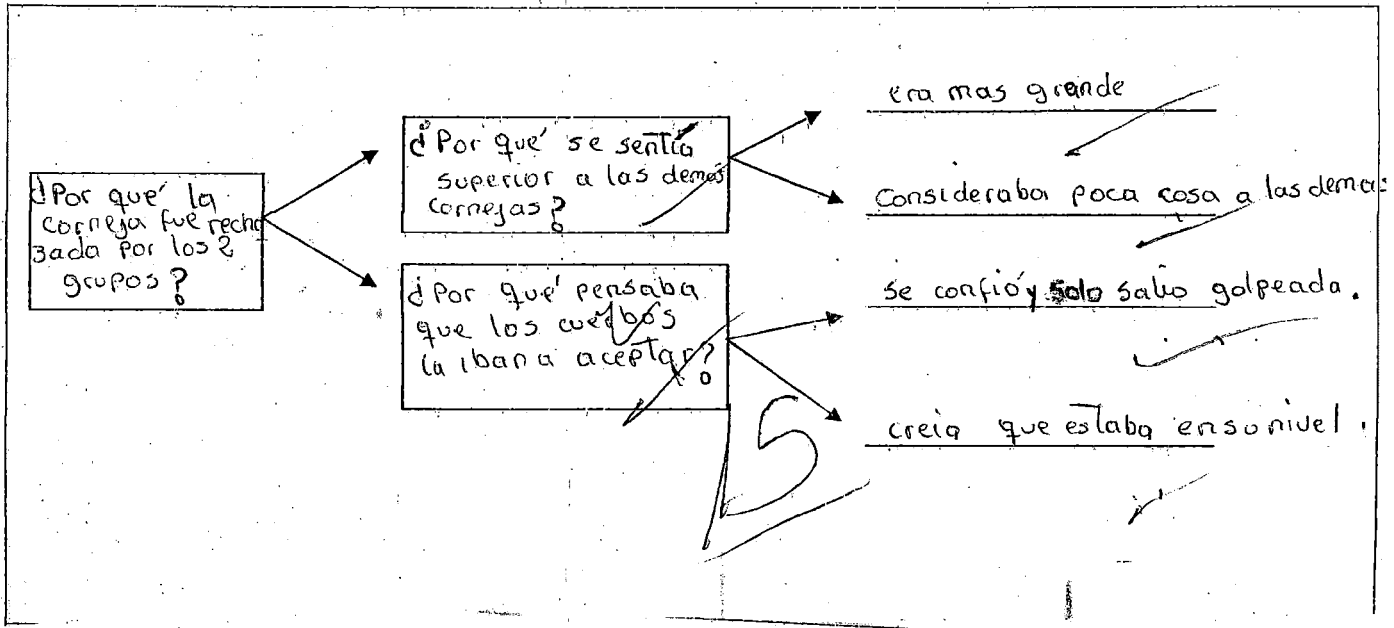 ¿Por qué la
corneja fue recha
zada por los 2
grupos?
¿Por qué se sentía
superior a las demás
cornejas?
¿Por qué pensaba
que los cuerbos
la iban a aceptar?
era mas grande
Consideraba poca cosa a las demas
se confió y solo salio golpeada.
creia que estaba en su nivel.
15